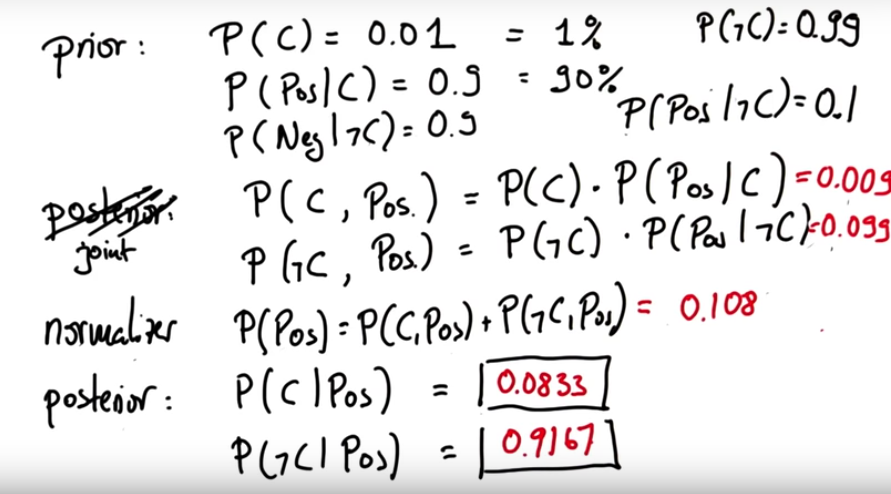 prior: P(C) = 0.01 = 1% P(¬C)=0.99
P(Pos|C) = 0.9 = 90%
P(Neg|¬C)=0.9 P(Pos|¬C)=0.1
posterior: P(C, Pos.) = P(C)·P(Pos|C)=0.009
joint P(¬C, Pos.) = P(¬C)·P(Pos|¬C)=0.099
normalizer P(Pos)=P(C,Pos)+P(¬C,Pos)= 0.108
posterior: P(C|Pos) = 0.0833
P(¬C|Pos) = 0.9167